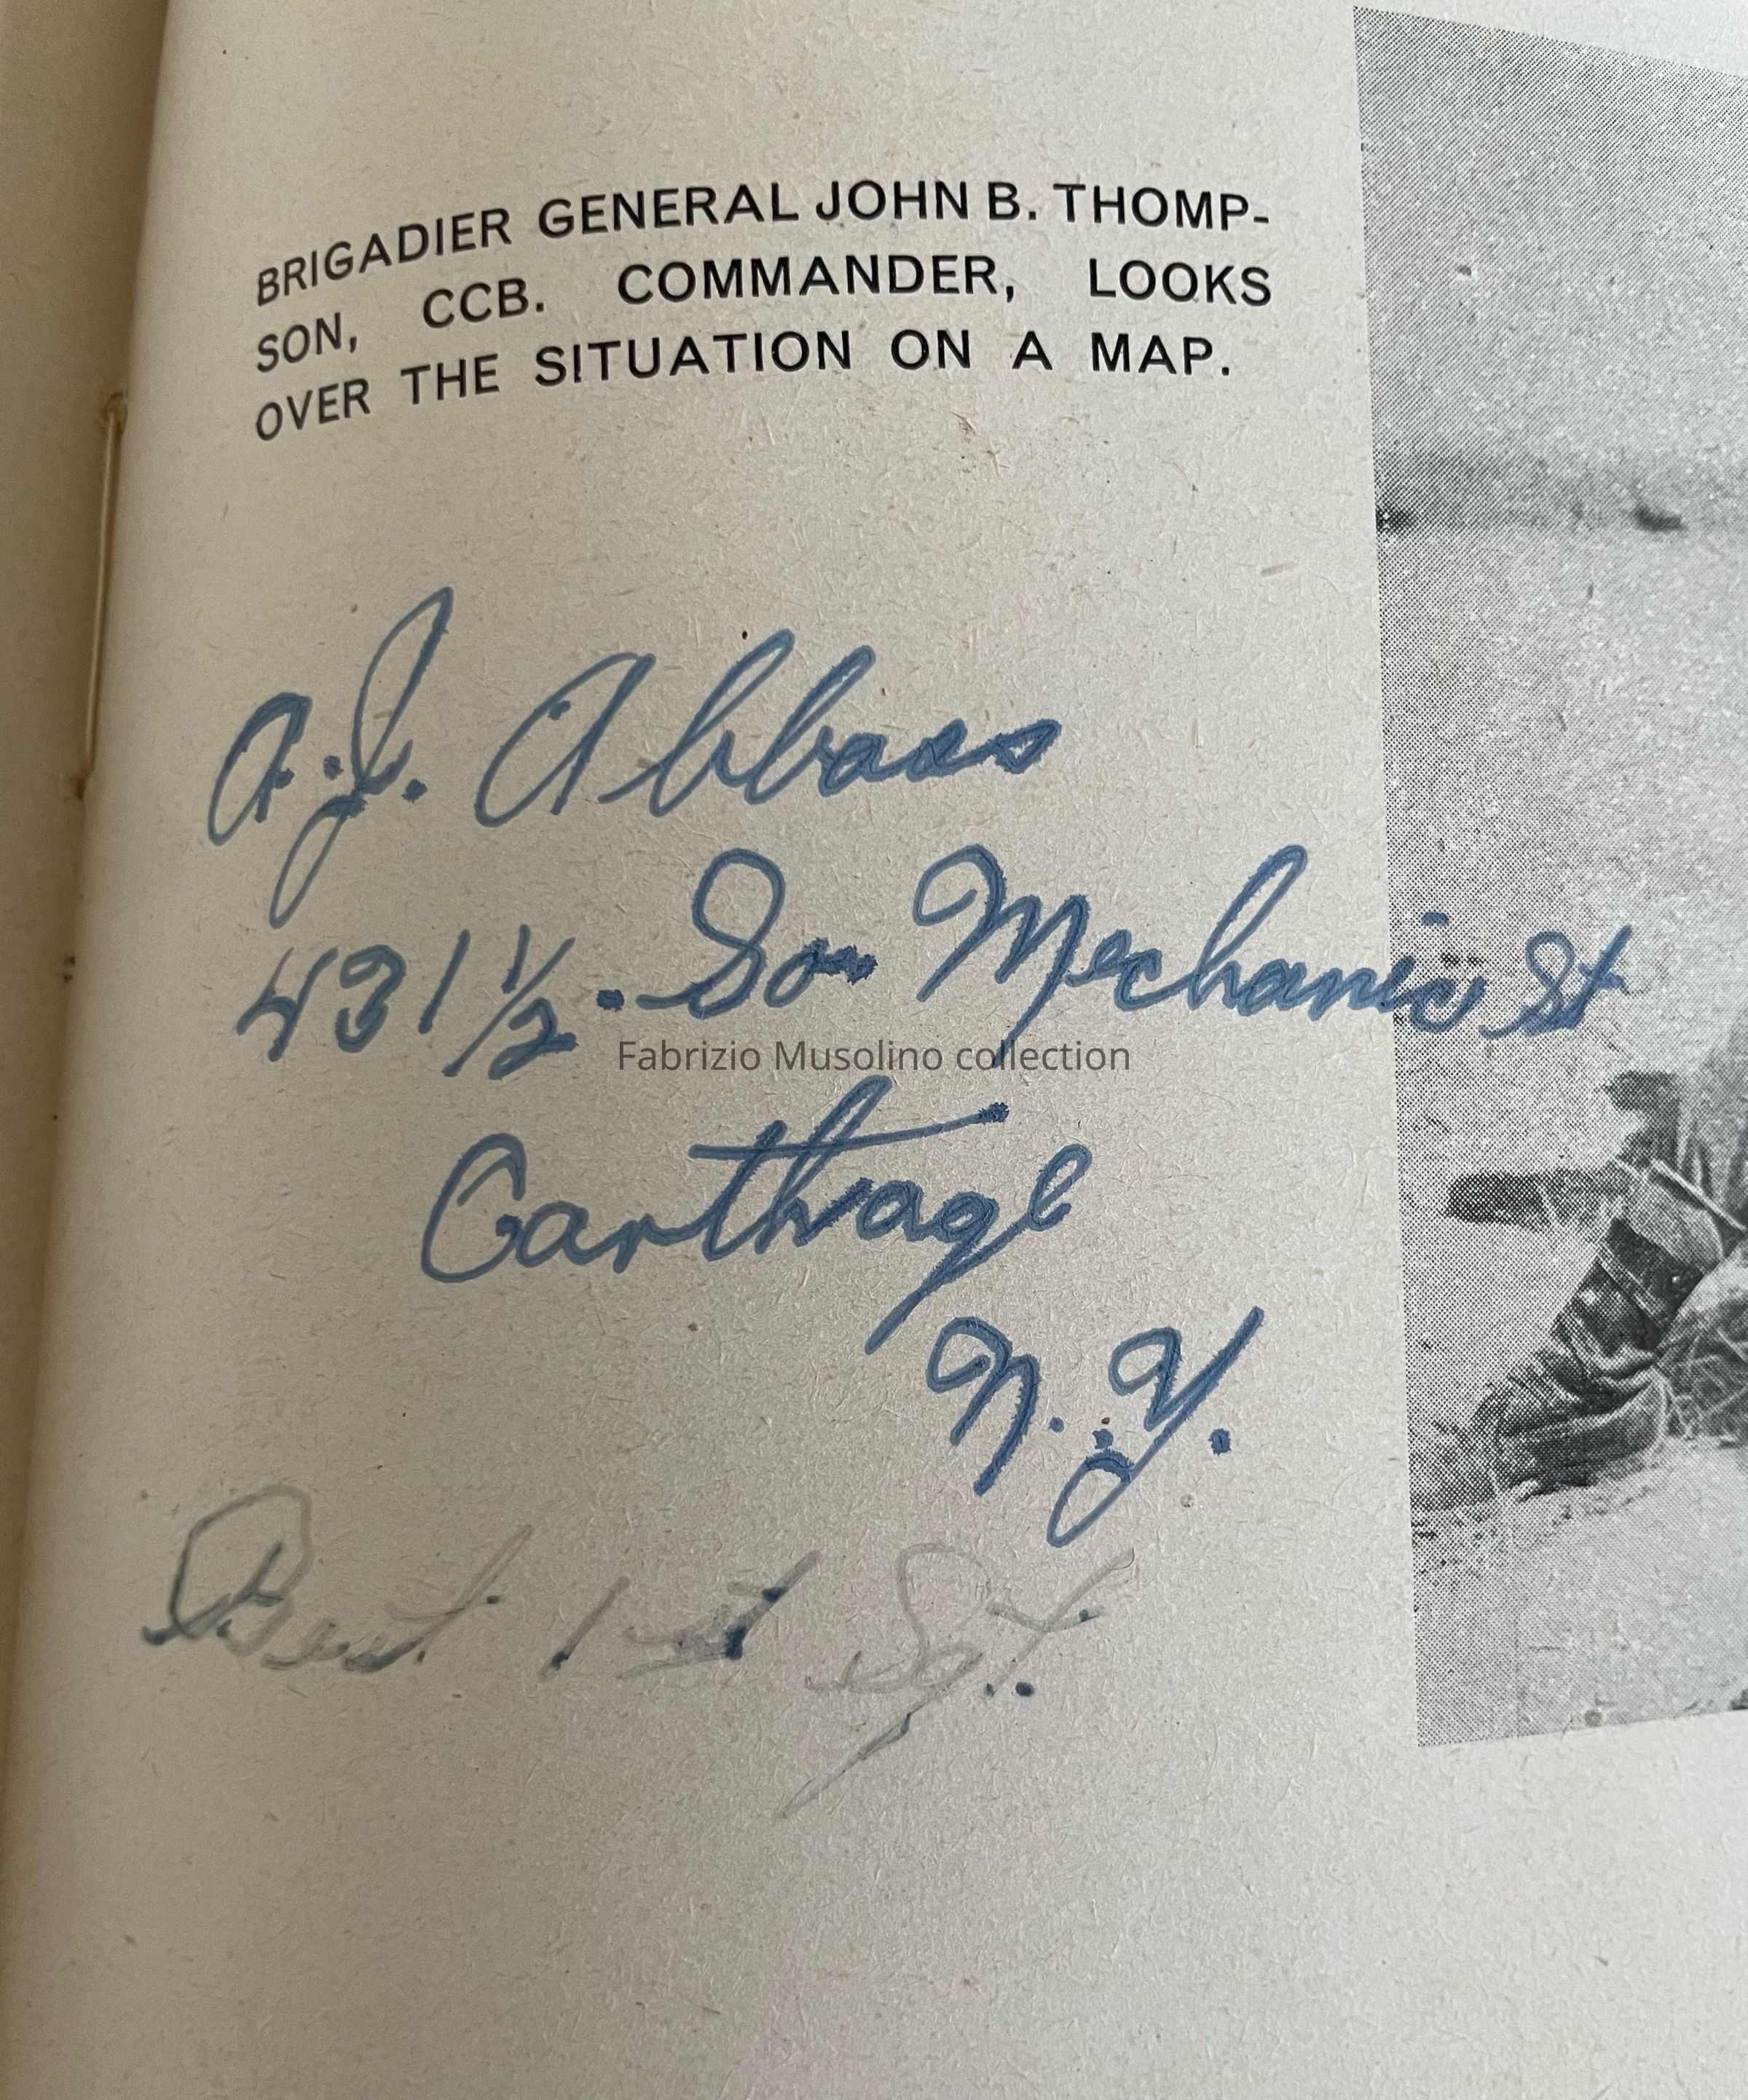 BRIGADIER GENERAL JOHN B. THOMP-
SON, CCB. COMMANDER, LOOKS
OVER THE SITUATION ON A MAP.
A.J. Abbass
431 1/2 · So Mechanic St
Fabrizio Musolino collection
Carthage
N.Y.
Best 1st Sgt.